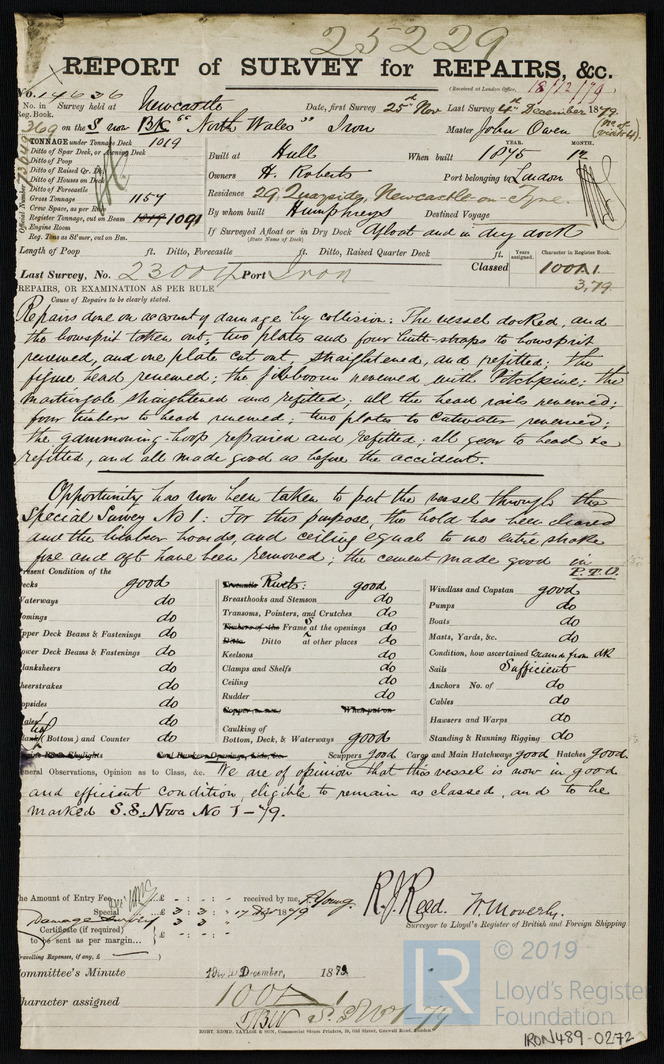 25229
REPORT of SURVEY for REPAIRS, &c.
(Received at London Office, 18/12/79
No. 14636
No. in Reg. Book. Survey held at Newcastle Date, first Survey 25th Nov Last Survey 4th December 1879
369 on the S. Bk "North Wales" Iron Master John Owen (No. of visits 4).
TONNAGE under Tonnage Deck 1019
Ditto of Spar Deck, or Awning Deck
Ditto of Poop
Ditto of Raised Qr. Dk.
Ditto of Houses on Deck
Ditto of Forecastle
Gross Tonnage 1157
Crew Space, as per Rule
Register Tonnage, cut on Beam 1091
Engine Room
Reg. Tons as St'mer, cut on Bm.
Official Number
Built at Hull When built YEAR. 1875 MONTH. 12
Owners H. Roberts Port belonging to London
Residence 29, Quayside, Newcastle-on-Tyne.
By whom built Humphreys Destined Voyage
If Surveyed Afloat or in Dry Dock Afloat and in dry dock
(State Name of Dock)
Length of Poop ft. Ditto, Forecastle ft. Ditto, Raised Quarter Deck ft.
Years assigned. Character in Register Book.
Last Survey, No. 23004 Port Iron Classed 100A1.
3,79
REPAIRS, OR EXAMINATION AS PER RULE
Cause of Repairs to be clearly stated.
Repairs done on account of damage by collision: The vessel docked, and
the bowsprit taken out, two plates and four butt-straps to bowsprit
renewed, and one plate cut out, straightened, and refitted; the
figure head renewed; the jibboom renewed with Pitchpine; the
martingale straightened and refitted; all the head rails renewed;
four timbers to head renewed; two plates to Cutwater renewed;
the gammoning-hoop repaired and refitted; all gear to head &c
refitted, and all made good as before the accident.
Opportunity has now been taken to put the vessel through the
Special Survey No 1: For this purpose, the hold has been cleared
and the limber boards, and ceiling equal to one entire strake
fore and aft have been removed; the cement made good in
P.T.O.
Present Condition of the
Decks good
Waterways do
Comings do
Upper Deck Beams & Fastenings do
Lower Deck Beams & Fastenings do
Planksheers do
Sheerstrakes do
Topsides do
Wales do
Plank (Bottom) and Counter do
Rivets: good
Breasthooks and Stemson do
Transoms, Pointers, and Crutches do
Timbers of the Frames at the openings do
Ditto Ditto at other places do
Keelsons do
Clamps and Shelfs do
Ceiling do
Rudder do
Copper When put on
Caulking of
Bottom, Deck, & Waterways good
Windlass and Capstan good
Pumps do
Boats do
Masts, Yards, &c. do
Condition, how ascertained Examd from Dk
Sails Sufficient
Anchors No. of do
Cables do
Hawsers and Warps do
Standing & Running Rigging do
Scuppers good Cargo and Main Hatchways good Hatches good.
General Observations, Opinion as to Class, &c. We are of opinion that this vessel is now in good
and efficient condition, eligible to remain as classed, and to be
marked S.S. Nwc No 1-79.
The Amount of Entry Fee £ : : received by me,
Special £ 3 : 3 : 17 Dec 1879
Damage Survey 3 3
Certificate (if required)
to be sent as per margin...
Travelling Expenses, if any, £
R. J. Reed. W. Moverly.
Surveyor to Lloyd's Register of British and Foreign Shipping
Committee's Minute December, 1879
Character assigned 100A 1
ROBT. EDMD. TAYLOR & SON, Commercial Steam Printers, 19, Old Street, Goswell Road, London
LR
© 2019
Lloyd's Register
Foundation
IRON489-0272